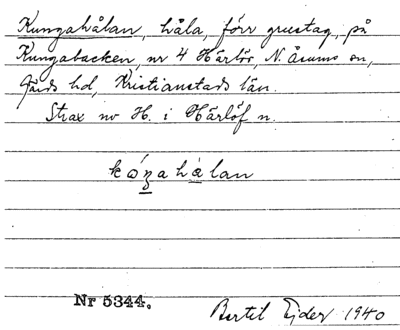 Kungahålan, håla, förr grustag, på
Kungabacken, nr 4 Härlöv, N. Åsums sn,
Gärds hd, Kristianstads län.
Strax nv H. i Härlöf n.
kóŋahålan
Nr 5344.
Bertil Ejder 1940